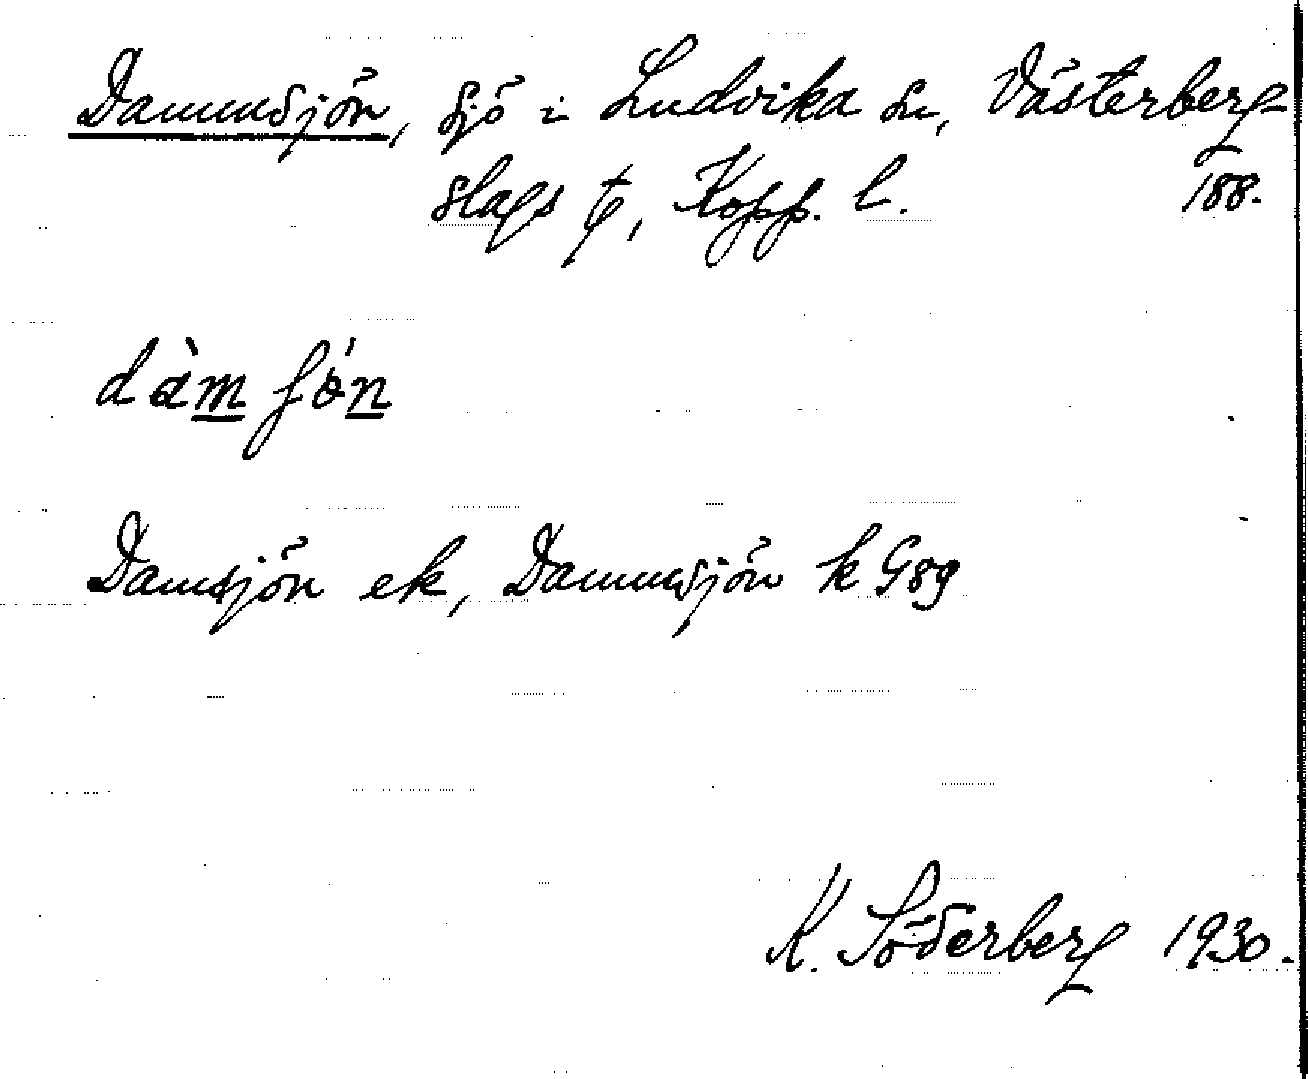 Dammsjön, sjö i Ludvika sn, Västerberg-
slags hd, Kopp. l. 188.
dàm fón
Damsjön ek, Dammsjön k G89
K. Söderberg 1930.